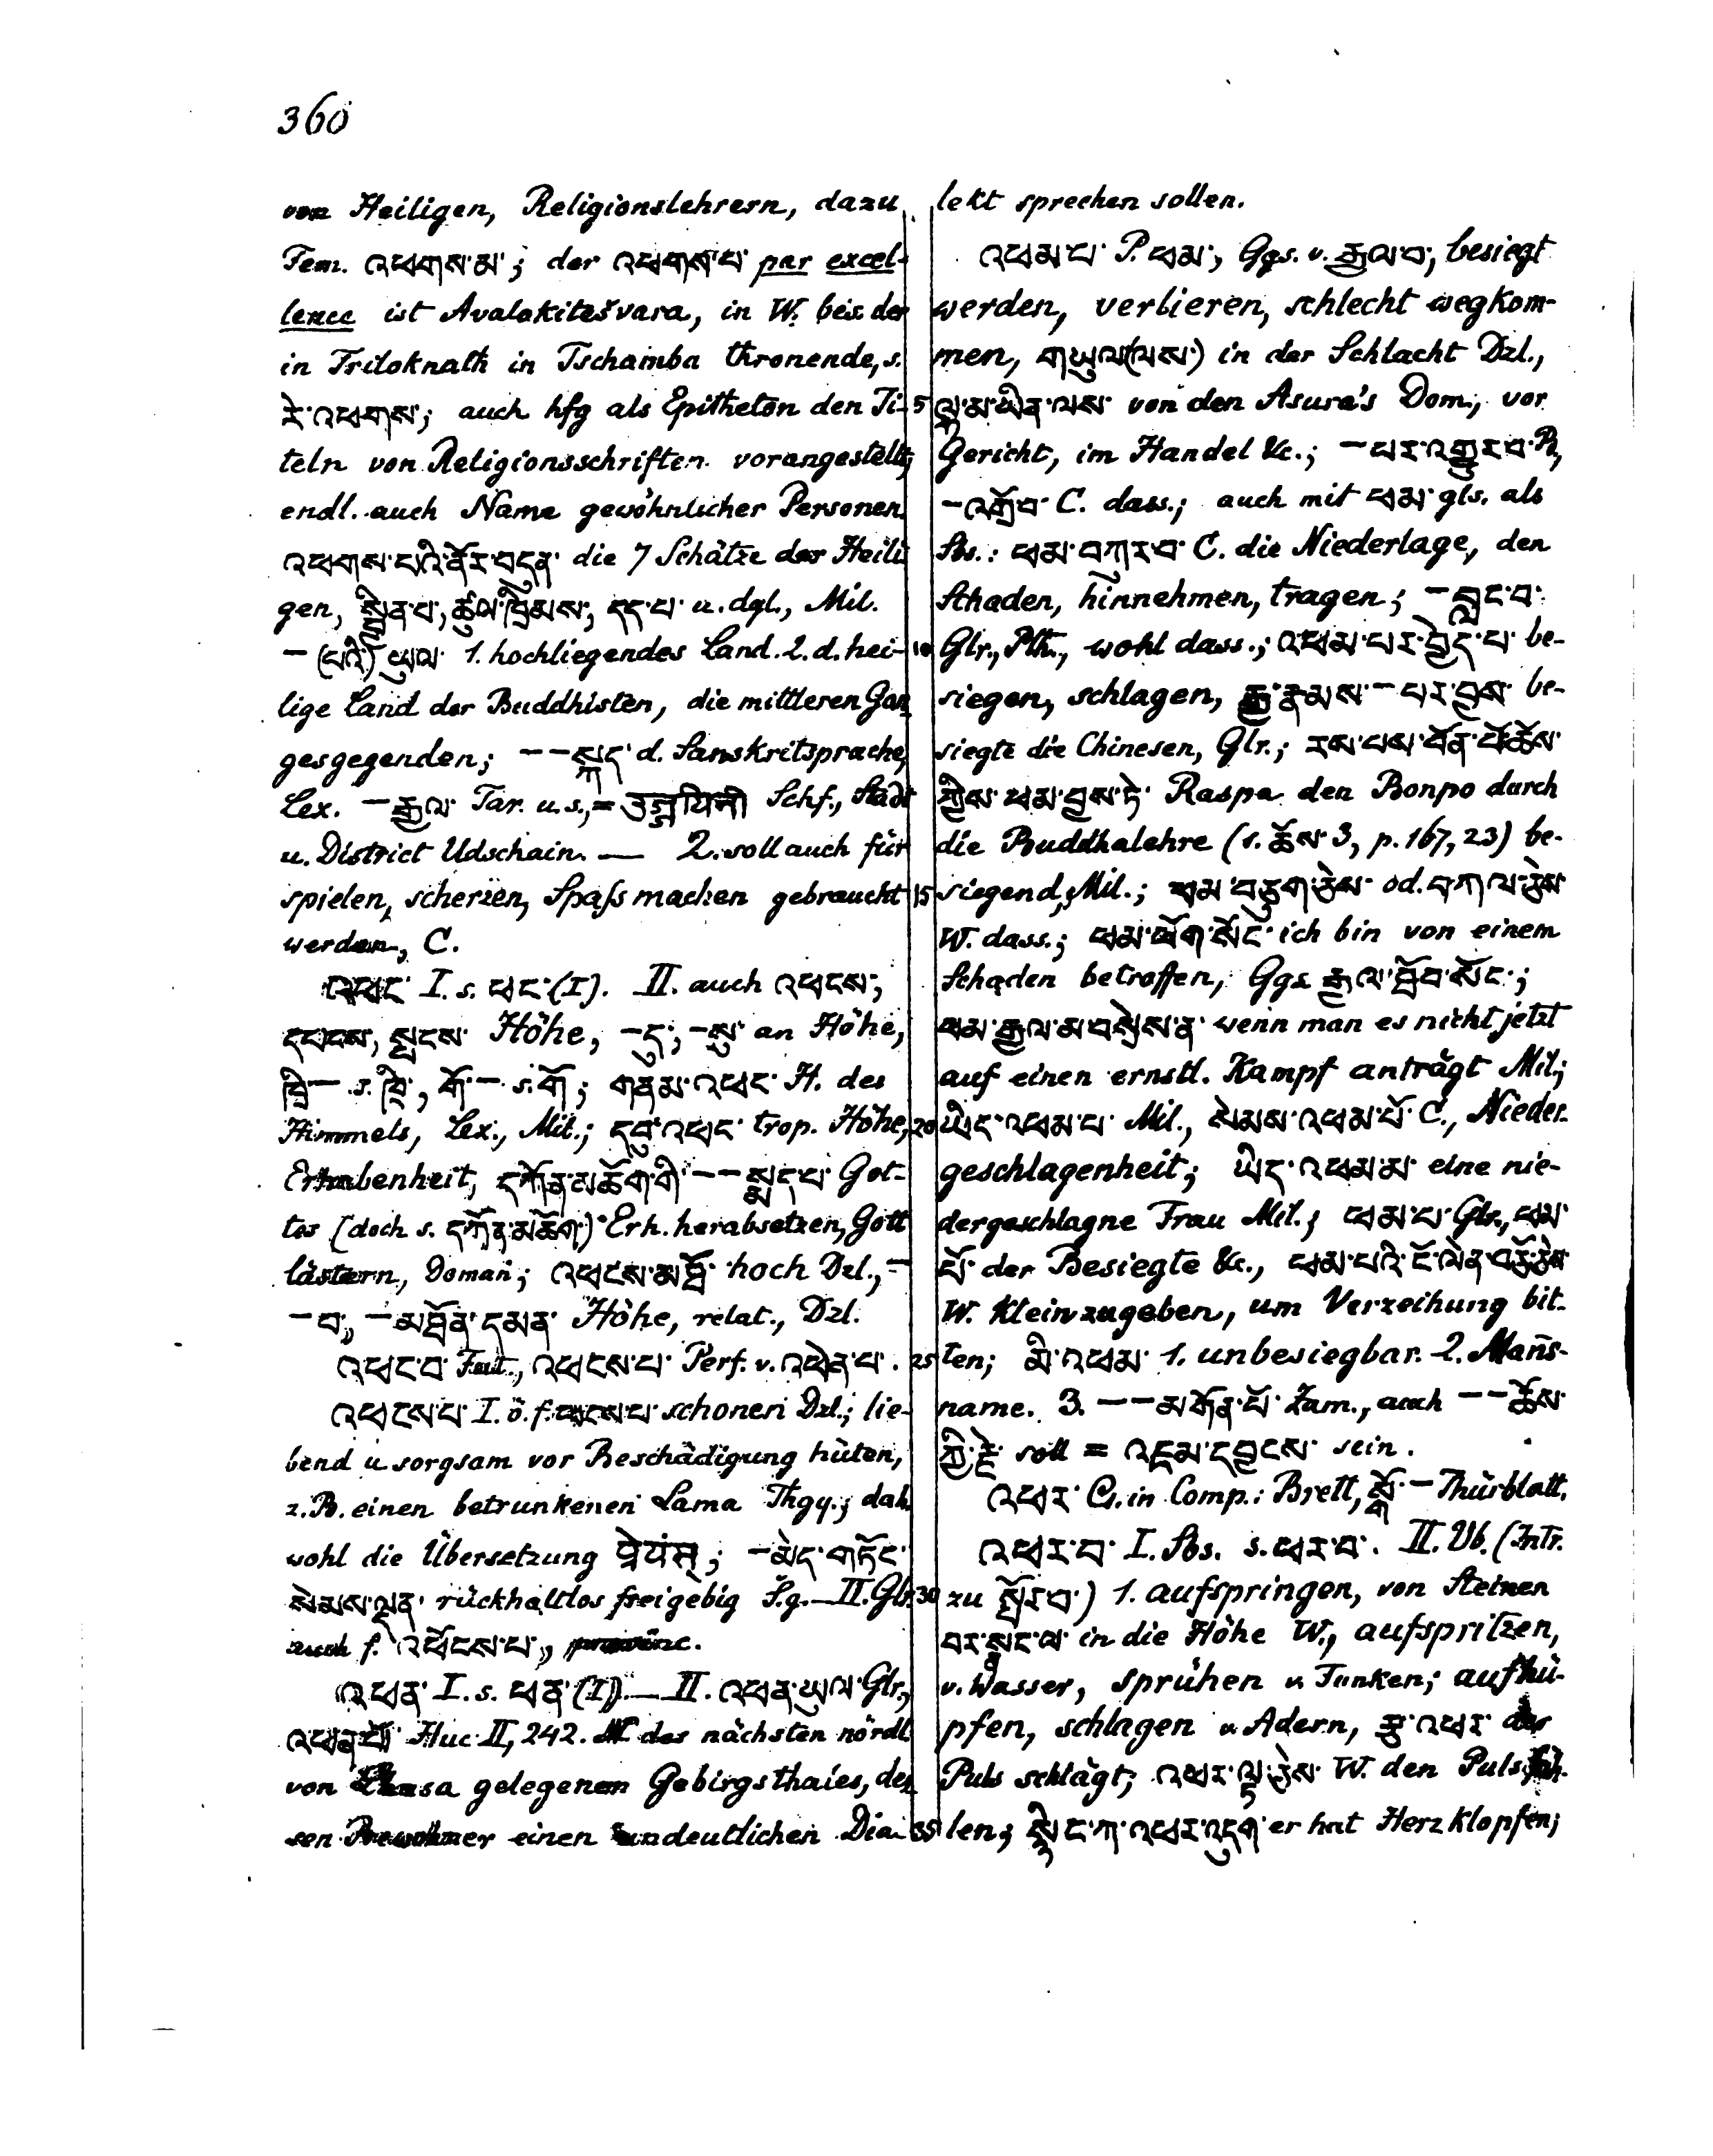 360
von Heiligen, Religionslehrern, dazu
Fem. འཕགས་མ་; der འཕགས་པ་ par excel-
lence ist Avalokitešvara, in W. bes. der
in Triloknath in Tschamba thronende, s.
རེ་འཕགས་; auch hfg als Epitheton den Ti-
teln von Religionsschriften vorangestellt;
endl. auch Name gewöhnlicher Personen.
འཕགས་པའི་ནོར་བདུན་ die 7 Schätze der Heili
gen, སྦྱིན་པ་, ཚུལ་ཁྲིམས་, དད་པ་ u. dgl., Mil.
– (པའི་) ཡུལ་ 1. hochliegendes Land. 2. d. hei-
lige Land der Buddhisten, die mittleren Gan
gesgegenden; – – སྐད་ d. Sanskritsprache,
Lex. – རྒྱལ་ Tar. u. s., = उज्जयिनी Schf., Stadt
u. District Udschain. — 2. soll auch für
spielen, scherzen, Spaſs machen gebraucht
werden, C.
འཕང་ I. s. ཕང་ (I). II. auch འཕངས་;
དཔངས་, སྤངས་ Höhe, – དུ་, – སུ་ an Höhe,
ཁྲི་ – s. ཁྲི་, གོ་ – s. གོ་; གནམ་འཕང་ H. des
Himmels, Lex., Mil.; དབུ་འཕང་ trop. Höhe,
Erhabenheit, དཀོན་མཆོག་གི་ – – སྨད་པ་ Got-
tes (doch s. དཀོན་མཆོག་) Erh. herabsetzen, Gott
lästern, Doman; འཕངས་མཐོ་ hoch Dzl., –
– བ་, – མཐོན་དམན་ Höhe, relat., Dzl.
འཕང་བ་ Fut., འཕངས་པ་ Perf. v. འཕེན་པ་.
འཕངས་པ་ I. ö. f. schonen Dzl.; lie-
bend u sorgsam vor Beschädigung hüten,
z. B. einen betrunkenen Lama Thgy.; dah.
wohl die Übersetzung ; – མེད་གཏོང་
སེམས་ལྡན་ rückhaltlos freigebig S.g. — II. Glr.
auch f. འཕོངས་པ་,
འཕན་ I. s. ཕན་ (I). — II. འཕན་ཡུལ་ Glr.,
འཕན་པོ་ Huc II, 242. des nächsten nördl.
von Lhasa gelegenen Gebirgsthales, des
sen Bewohner einen undeutlichen Dia-
lekt sprechen sollen.
འཕམ་པ་ P. ཕམ་, Ggs. v. རྒྱལ་བ་, besiegt
werden, verlieren, schlecht wegkom-
men, གཡུལ་(ལས་) in der Schlacht Dzl.,
5 ལྷ་མ་ཡིན་ལས་ von den Asura's Dom., vor
Gericht, im Handel &c.; – པར་འགྱུར་བ་ P,
– འགྲོ་བ་ C. dass.; auch mit ཕམ་ gls. als
Sbs.: ཕམ་བཀུར་བ་ C. die Niederlage, den
Schaden, hinnehmen, tragen; – བླང་བ་
10 Glr., Pth., wohl dass.; འཕམ་པར་བྱེད་པ་ be-
siegen, schlagen, རྒྱ་རྣམས་ – པར་བྱས་ be-
siegte die Chinesen, Glr.; རས་པས་བོན་པོ་ཆོས་
ཀྱིས་ཕམ་བྱས་ཏེ་ Raspa den Bonpo durch
die Buddhalehre (s. ཆོས་ 3, p. 167, 23) be-
15 siegend, Mil.; ཕམ་བཅུག་ཅེས་ od. བཀལ་ཅེས་
W. dass.; ཕམ་ཕོག་སོང་ ich bin von einem
Schaden betroffen, Ggs རྒྱལ་ཐོབ་སོང་;
ཕམ་རྒྱལ་མ་བསྲེས་ན་ wenn man es nicht jetzt
auf einen ernstl. Kampf anträgt Mil.;
20 ཡིད་འཕམ་པ་ Mil., སེམས་འཕམ་པོ་ C., Nieder-
geschlagenheit; ཡིད་འཕམ་མ་ eine nie-
dergeschlagne Frau Mil.; ཕམ་པ་ Glr., ཕམ་
པོ་ der Besiegte &c., ཕམ་པའི་ངོ་ལེན་བཅོ་ཅེས་
W. klein zugeben, um Verzeihung bit-
25 ten; མི་འཕམ་ 1. unbesiegbar. 2. Manns-
name. 3. – – མགོན་པོ་ Zam., auch – – ཆོས་
ཀྱི་རྗེ་ soll = འཇམ་དབྱངས་ sein.
འཕར་ Cs. in Comp.: Brett, སྒོ་ – Thürblatt.
འཕར་བ་ I. Sbs. s. ཕར་བ་. II. Vb. (Intr.
30 zu སྤོར་བ་) 1. aufspringen, von Steinen
བར་སྣང་ལ་ in die Höhe W., aufspritzen,
v. Wasser, sprühen v. Funken; aufhü-
pfen, schlagen v. Adern, རྩ་འཕར་ der
Puls schlägt; འཕར་ལྟ་ཅེས་ W. den Puls füh-
35 len; སྙིང་ཀ་འཕར་འདུག་ er hat Herzklopfen;